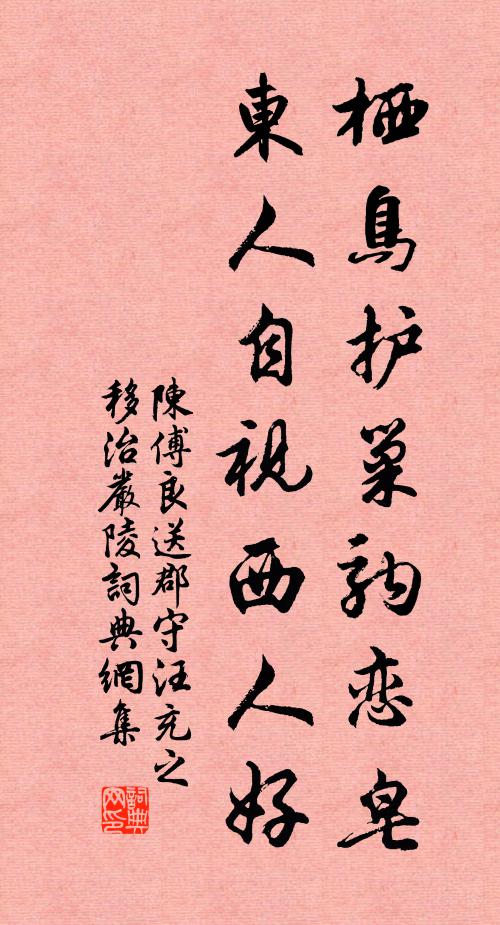 栖鳥护巢驹恋皂
東人自視西人好
陳傅良送郡守汪充之
移治嚴陵詞典網集
詞典网印